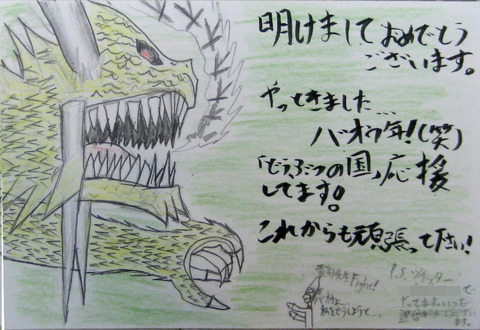 明けましておめでとう
ございます。
やってきました…
バオウ年!(笑)
「どうぶつの国」応援
してます。
これからも頑張って下さい!
Fight!
P.S.ツイッター
で